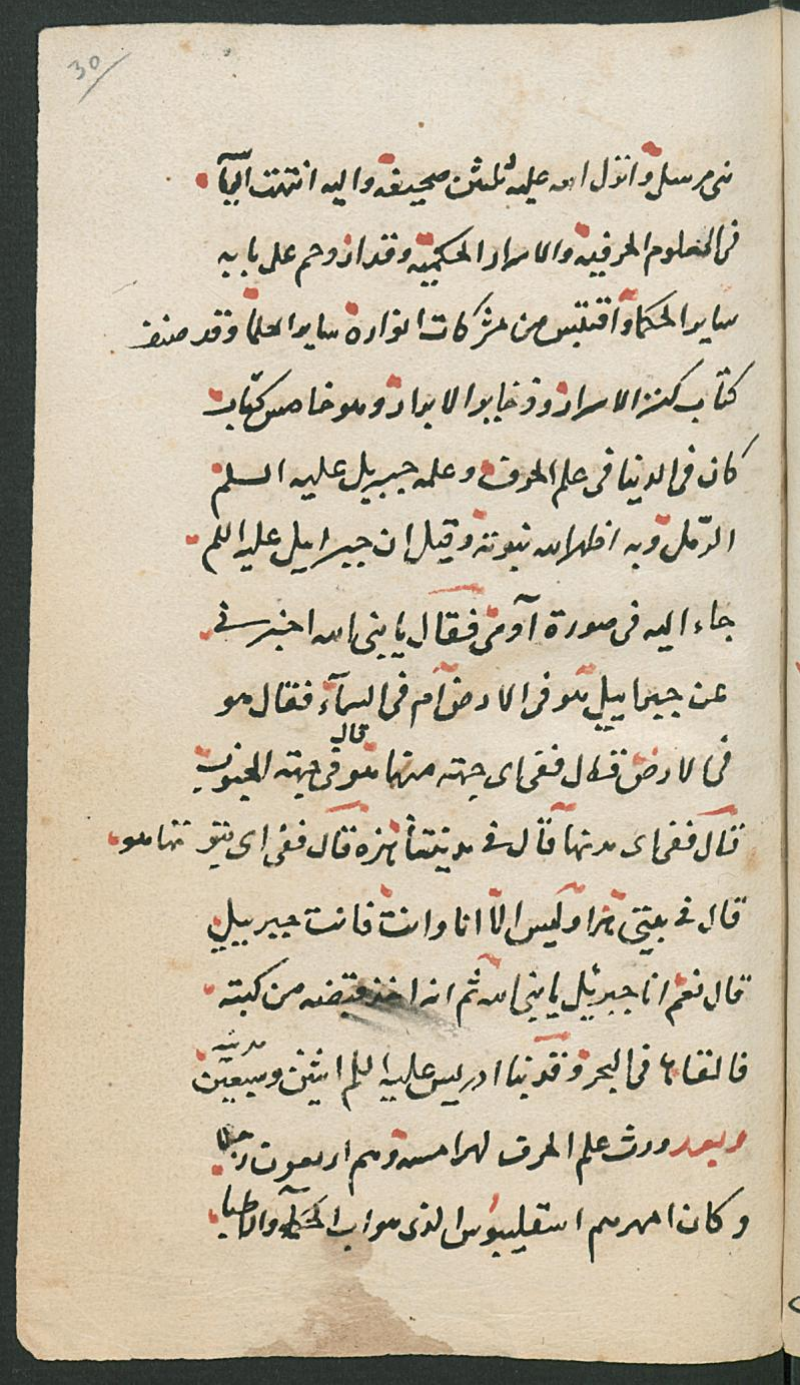 30
نبى مرسل وانزل الله عليه ثلثين صحيفه واليه انتهت الريآ
فى العلوم الحرفيه والاسرار الحكميه وقد ازدحم على بابه
ساير الحكما واقتبس من مشركات انواره ساير العلما وقد صنف
كتاب كنز الاسرار وذخاير الابرار وهو خامس كتاب
كان فى الدنيا فى علم الحروف وعلمه جبريل عليه السلم
الرّمل وبه اظهر الله نبوته وقيل ان جبرايل عليه اللم
جاء اليه فى صورة آدمى فقال يا نبى الله اخبرنى
عن جبراييل هو فى الارض ام فى السمآء فقال هو
فى الارض فقال ففى اى جهته منها قال هو فى جهته الجنوب
قال ففى اى مدنها قال فى مدينتنا هذه قال ففى اى بيوتها هو
قال فى بيتى هذا وليس الّا انا وانت فانت جبرييل
قال نعم انا جبرئيل يا نبى الله ثم انه اخذ قبضه من كبته
فالقاها فى البحر وقد بنا ادريس عليه اللم اثنين وسبعين مدينه
وبعد ورث علم الحرف لهرامسه وهم اربعون رجلا
وكان امهرهم اسقليبوس الذى هو اب الحكمآ والاطبا